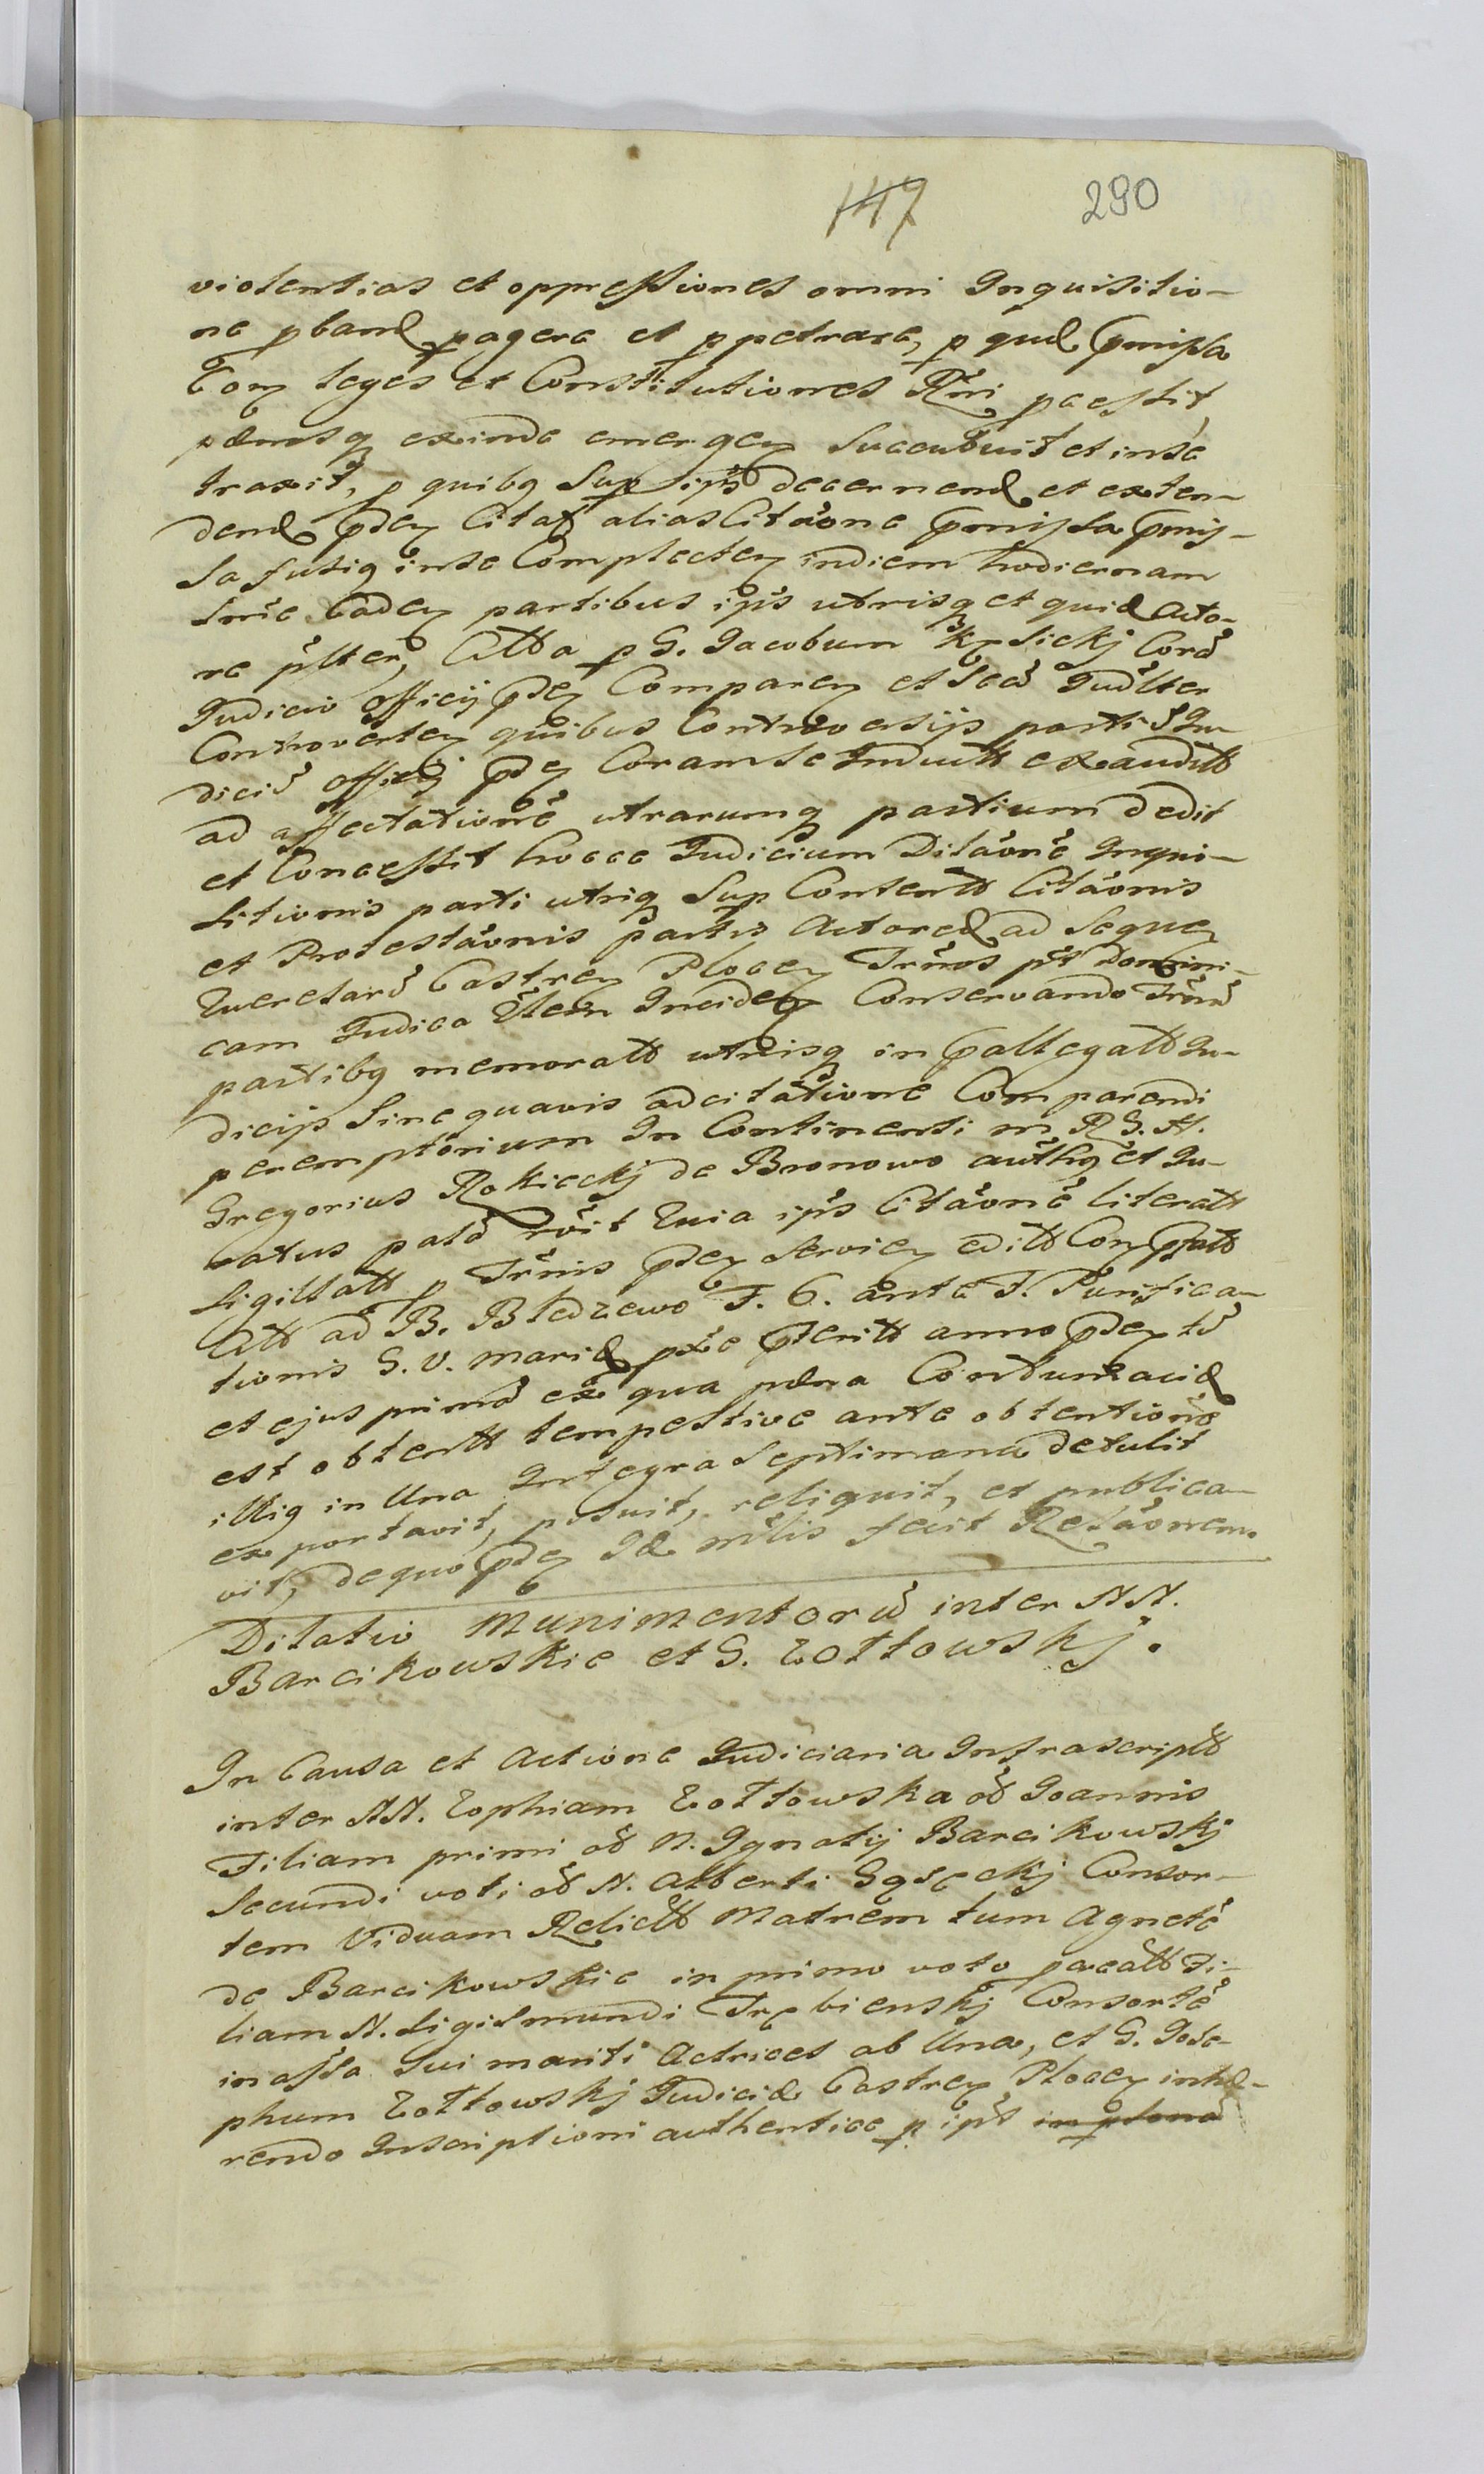 147 290
violentias et oppressiones omni Inquisitio-
ne pband pagere et ppetrare, p qud pmissa
Con leges et Constitutiones Rni pcessit,
pænasq exinde emergen Succubuit et in se
traxit, p quibq Sup ips decernend et exten-
dend pden Citat alias Citaõne pmissa pmis-
sa fusiq in se Complecten in diem hodiernam
Caden partibus ips utrisq et quid Acto-
re pltter, Citta p G. Jacobum Corã
Judicio Officij pden Comparen et Secũ Judltter
Controverten quibus Controversijs parti Ju-
diciũ Officij pden Coram se Induct exaudit
ad affectationẽ utrarumq partium dedit
et Concessit hocce Judicium Dilaõnẽ Inqui-
sitionis parti utriq Sup Content Citaõnis
et Protestaõnis partis Actoreæ ad Sequen
Querelarũ Castren Plocen Trnos pst Domini-
cam Judica Inciden Conservando Trnũ
partibq memorat utrisq in pallegat Ju-
dicijs Sine quavis adcitatione Comparendi
peremptorium In Continenti m R G. N.
Gregorius Rokickj de Bronowo authq et Ju-
ratus palã rõit quia ips Citaõnẽ literatt
Sigillatt p Trnis pden Servien editt Con
Citt ad B. Bledzewo F. 6. ante F. Purifica-
tionis S. V. Mariæ pxe pterit anno pden tũ
et ejus primã ex qua pæna Contumaciæ
est obtentt tempestive ante obtentionẽ
illiq in Una Integra Septimana detulit
exportavit, posuit, reliquit, et publica-
vit, de quo pden Id mlis fecit Relaõnem.
Dilatio Munimentorũ inter NN.
Barcikowskie et G. Zołtowskj.
In Causa et Actione Judiciaria Infrascriptt
inter NN. Zophiam Zołtowska oð Joannis
Filiam primi oð N. Ignatij Barcikowskj
Secundi voti oð N. Alberti Consor-
tem Viduam Relictt Matrem tum Agnetẽ
de Barcikowskie in primo voto pcreatt Fi-
liam N. Sigismundi Trębienskj Consortẽ
in assa Sui mariti Actrices ab Una, et G. Jose-
phum Zołtowskj Judiciæ Castren Plocen inhæ-
rendo Inscriptioni authenticæ p ips in